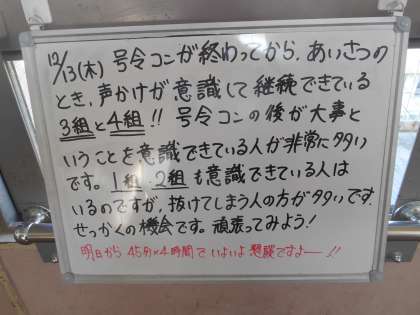 12/13(木) 号令コンが終わってから、あいさつの
とき、声かけが意識して継続できている
3組と4組!! 号令コンの後が大事と
いうことを意識できている人が非常に多い
です。1組・2組も意識できている人は
いるのですが、抜けてしまう人の方が多いです。
せっかくの機会です。頑張ってみよう!
明日から 45分×4時間で いよいよ 懇談ですよー!!